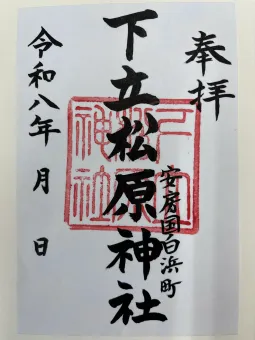 奉拝
下立松原神社
安房国白浜町
令和八年　月　日